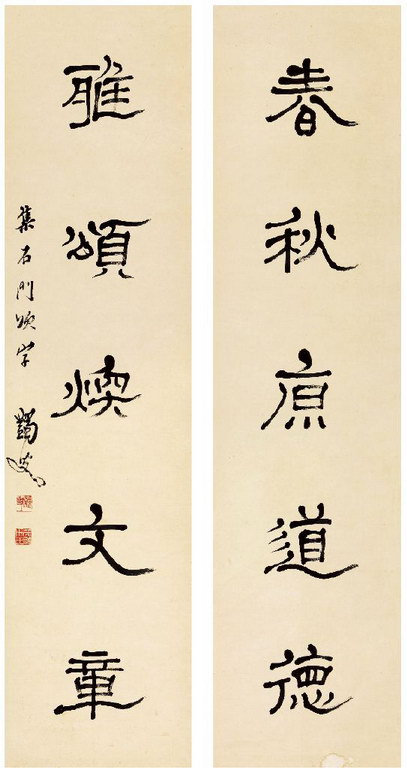 春秋原道德
雅頌煥文章
集石門頌字 蠲叟